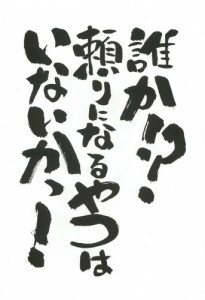 誰か!?!
頼りになるやつは
いないかっー!